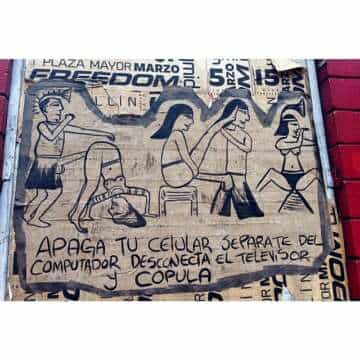 PLAZA MAYOR MARZO
FREEDOM
5
RZO
15
MARZO
APAGA TU CELULAR SEPARATE DEL
COMPUTADOR DESCONECTA EL TELEVISOR
Y COPULA